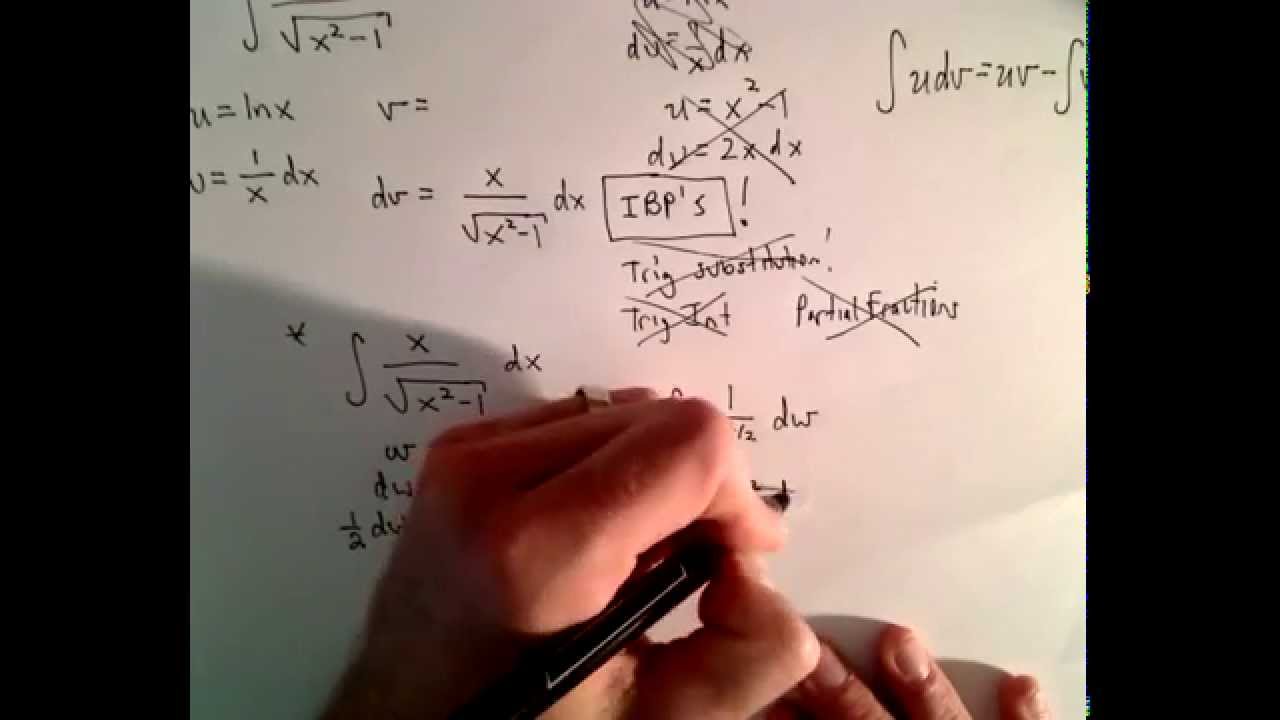 ∫ / √(x²-1)
du = 1/x dx
∫udv=uv-∫
u = ln x   v =
u = x²-1
du = 2x dx
= 1/x dx   dv = x/√(x²-1) dx
IBP's !
Trig substitution!
Trig Int   Partial Fractions
* ∫ x/√(x²-1) dx
1/ 1/2 dw
w
dw
1/2 dw